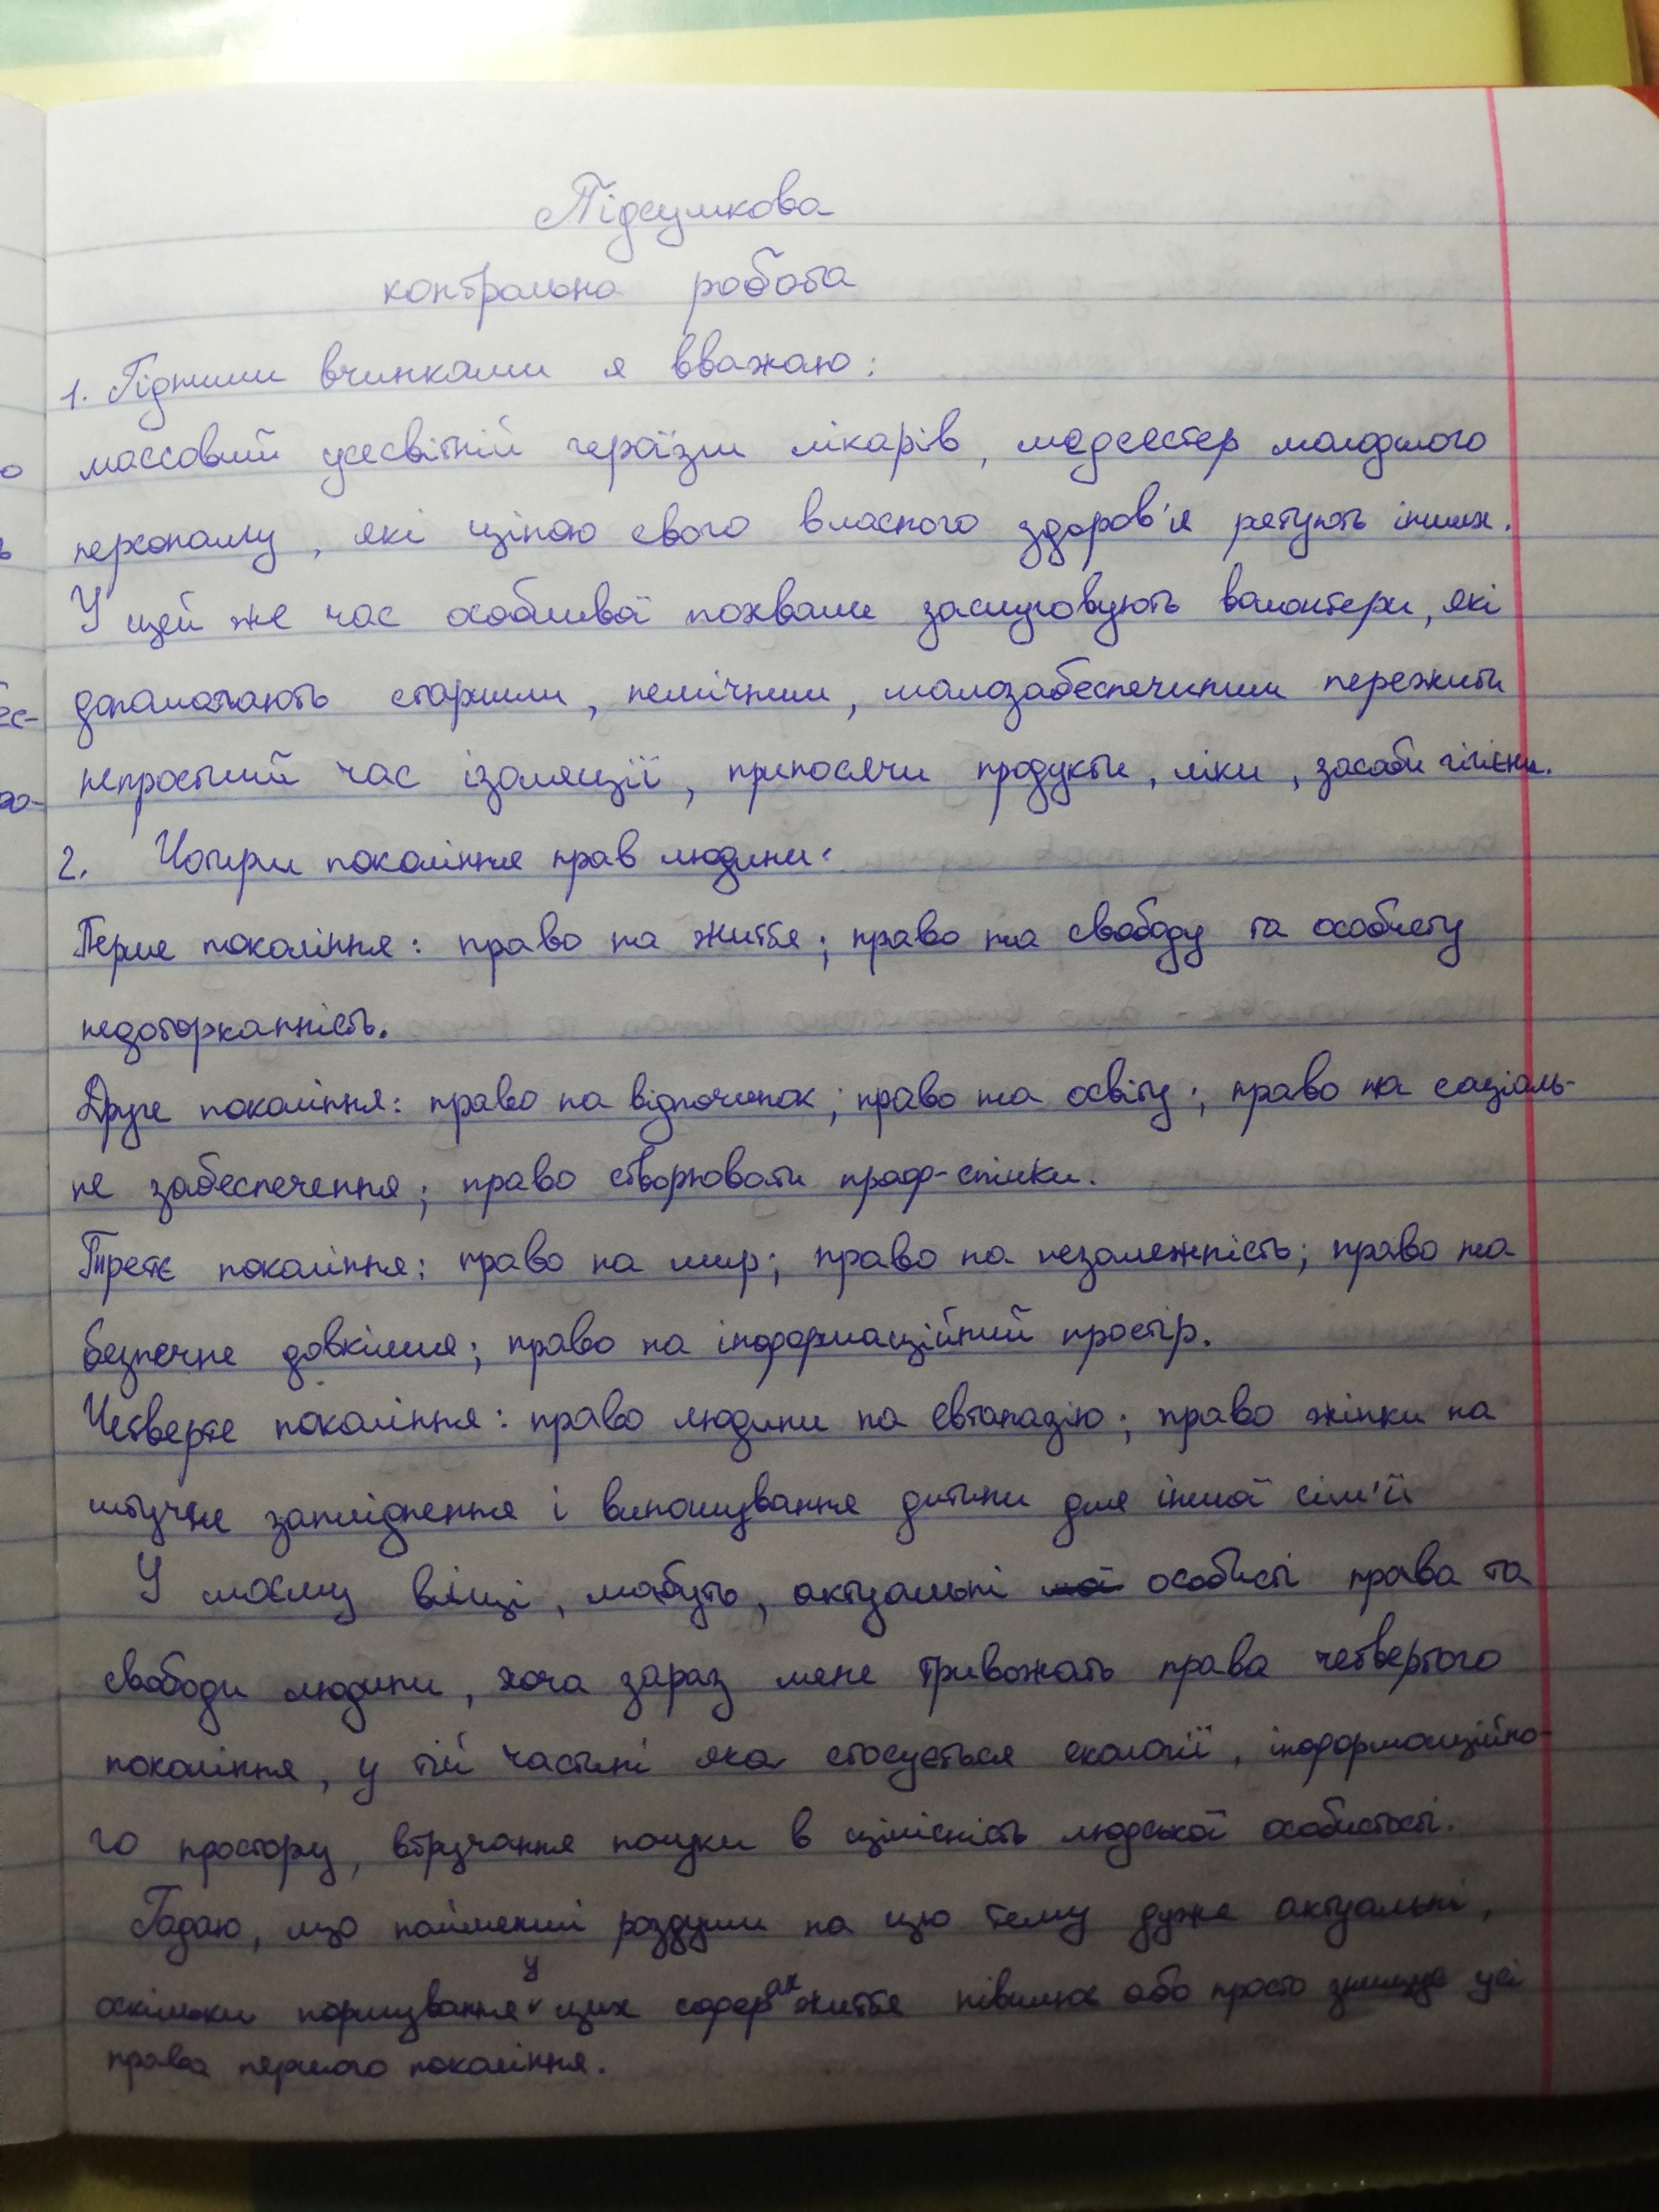 Підсумкова
контрольна робота
1. Гідними вчинками я вважаю:
массовий усесвітній героїзм лікарів, медсестер молодшого
персоналу, які ціною свого власного здоров'я рятують інших.
У цей же час особливої похвали заслуговують волонтери, які
допомагають старшим, немічним, малозабеспечиним пережити
непростий час ізоляції, приносячи продукти, ліки, засоби гігієни.
2. Чотири покоління прав людини:
Перше покоління: право на життя; право на свободу та особисту
недоторканність.
Друге покоління: право на відпочинок; право на освіту; право на соціаль-
не забеспечення; право створювати проф-спілки.
Третє покоління: право на мир; право на незалежність; право на
безпечне довкілля; право на інформаційний простір.
Четверте покоління: право людини на евтаназію; право жінки на
штучне запліднення і виношування дитини для іншої сім'ї
У моєму віці, мабуть, актуальні особисті права та
свободи людини, хоча зараз мене тривожать права четвертого
покоління, у тій частині яка стосується екології, інформаційно-
го простору, втручання науки в цілісність людської особистості.
Гадаю, що роздуми на цю тему дуже актуальні,
оскільки порушування у цих сферах життя нівелює або просто знищує усі
права першого покоління.